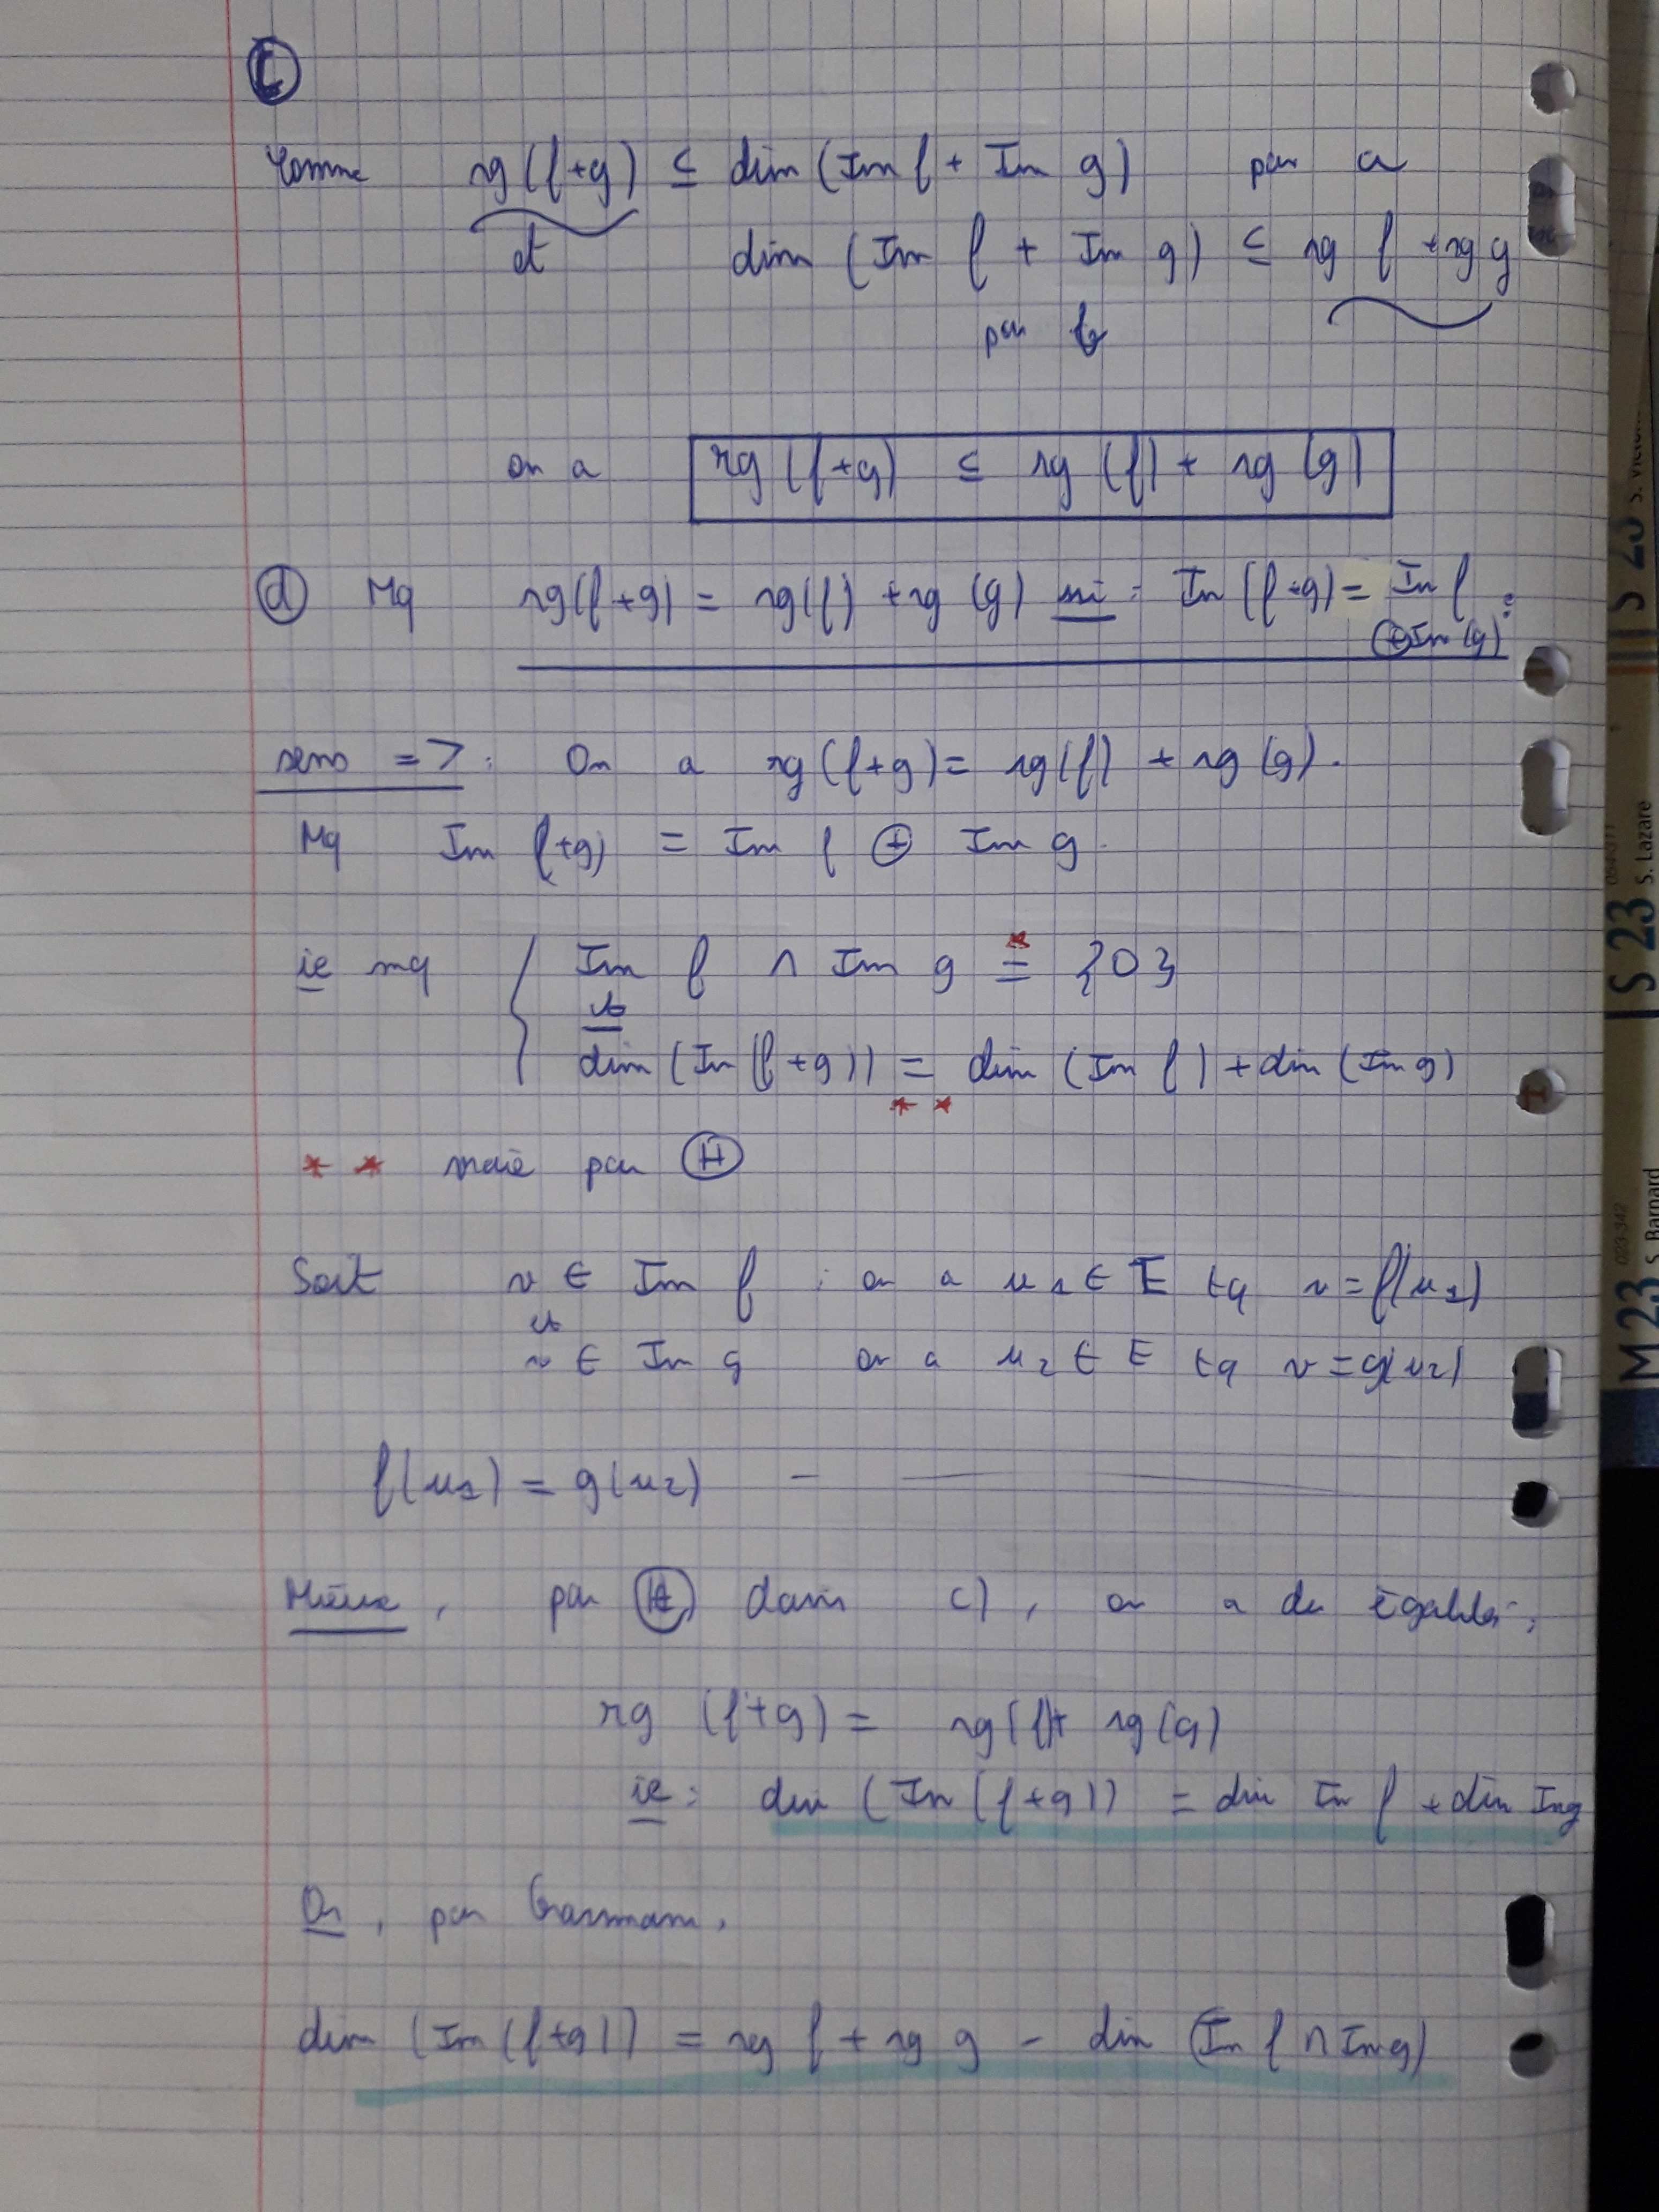 c
Comme rg(f+g) ≤ dim (Im f + Im g) par a
et dim (Im f + Im g) ≤ rg f + rg g
par b
on a rg (f+g) ≤ rg (f) + rg (g)
d Mq rg(f+g) = rg(f) + rg (g) ssi : Im (f+g) = Im f
⊕ Im (g) :
sens => : On a rg (f+g) = rg(f) + rg (g).
Mq Im (f+g) = Im f ⊕ Im g.
ie mq { Im f ∩ Im g = {0} *
et
dim (Im (f+g)) = dim (Im f) + dim (Im g)
* *
* * vraie par H
Soit v ∈ Im f : on a u1 ∈ E tq v = f(u1)
et
v ∈ Im g on a u2 ∈ E tq v = g(u2)
f(u1) = g(u2) —
Mieux, par H dans c), on a des égalités,
rg (f+g) = rg(f) + rg (g)
ie : dim (Im (f+g)) = dim Im f + dim Im g
Or, par Grassmann,
dim (Im (f+g)) = rg f + rg g - dim (Im f ∩ Im g)
S 23 S. Victor
S 23 S. Lazare
M 23 S. Barnard
023-342